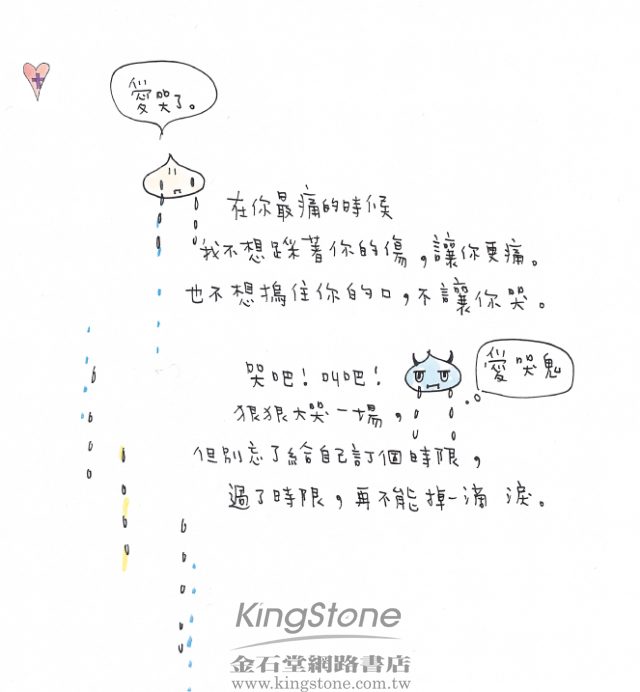 愛哭了。
在你最痛的時候
我不想踩著你的傷，讓你更痛。
也不想摀住你的口，不讓你哭。
哭吧！叫吧！
愛哭鬼
狠狠大哭一場，
但別忘了給自己訂個時限，
過了時限，再不能掉一滴淚。
KingStone
金石堂網路書店
www.kingstone.com.tw